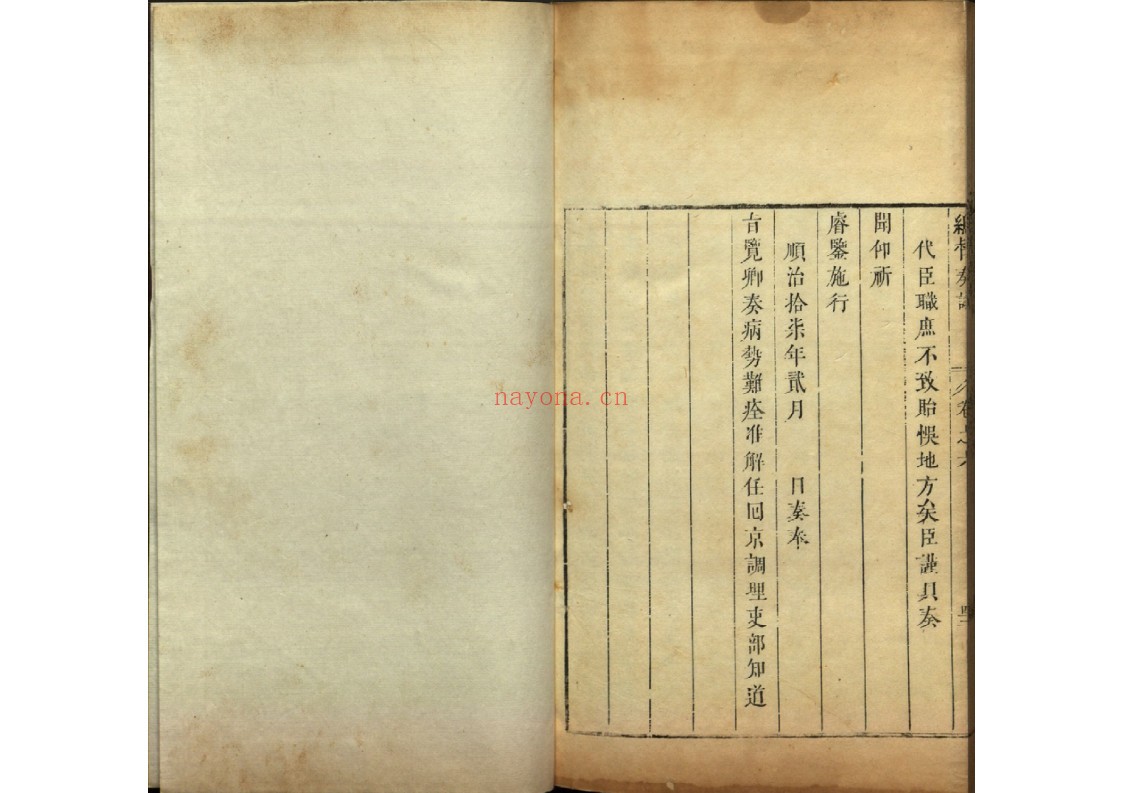 奏議
卷之六
代臣職庶不致貽悞地方矣臣謹具奏
聞仰祈
睿鑒施行
順治拾柒年貳月 日奏奉
旨覽卿奏病勢難痊准解任回京調理吏部知道
nayona.cn